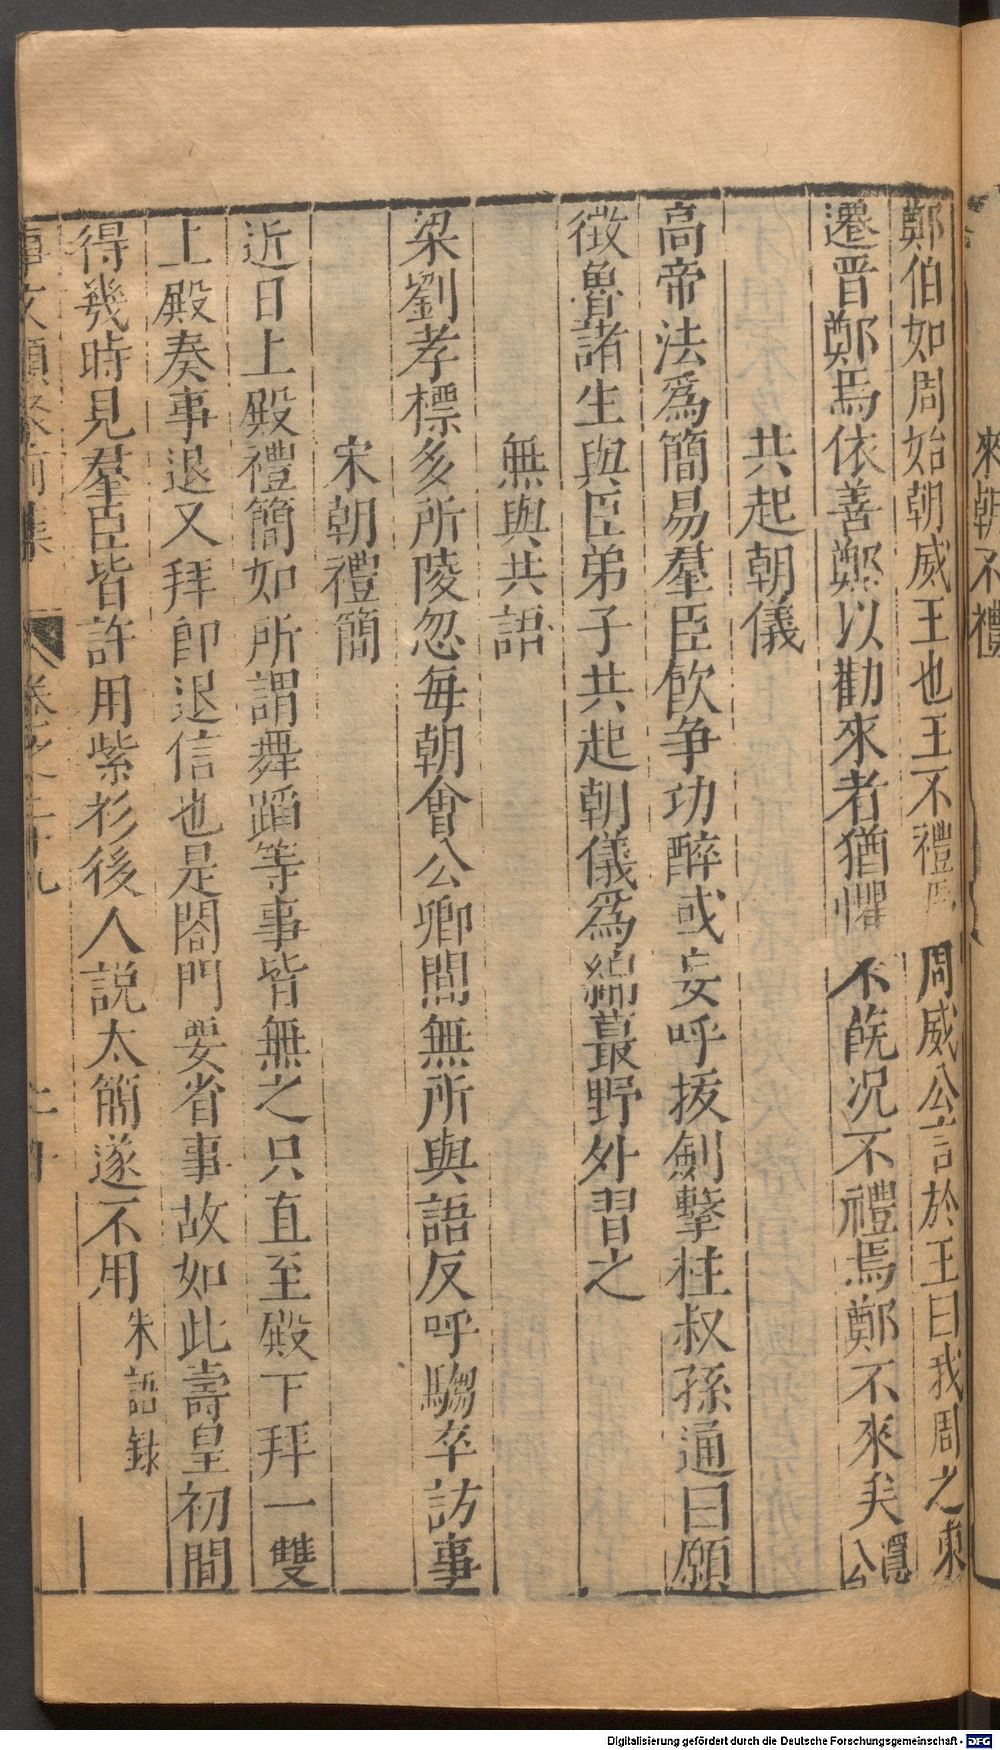 來朝不禮
鄭伯如周始朝威王也王不禮焉周威公言於王曰我周之東
遷晋鄭焉依善鄭以勸來者猶懼不旣况不禮焉鄭不來矣隱公
共起朝儀
高帝法爲簡易羣臣飲争功醉或妄呼拔劍擊柱叔孫通曰願
徵魯諸生與臣弟子共起朝儀爲綿蕞野外習之
無與共語
梁劉孝標多所陵忽每朝會公卿間無所與語反呼騶卒訪事
宋朝禮簡
近日上殿禮簡如所謂舞蹈等事皆無之只直至殿下拜一雙
上殿奏事退又拜卽退信也是閤門要省事故如此壽皇初間
得幾時見羣臣皆許用紫衫後人説太簡遂不用朱語録
事文類聚前集 卷之二十九
Digitalisierung gefördert durch die Deutsche Forschungsgemeinschaft - DFG